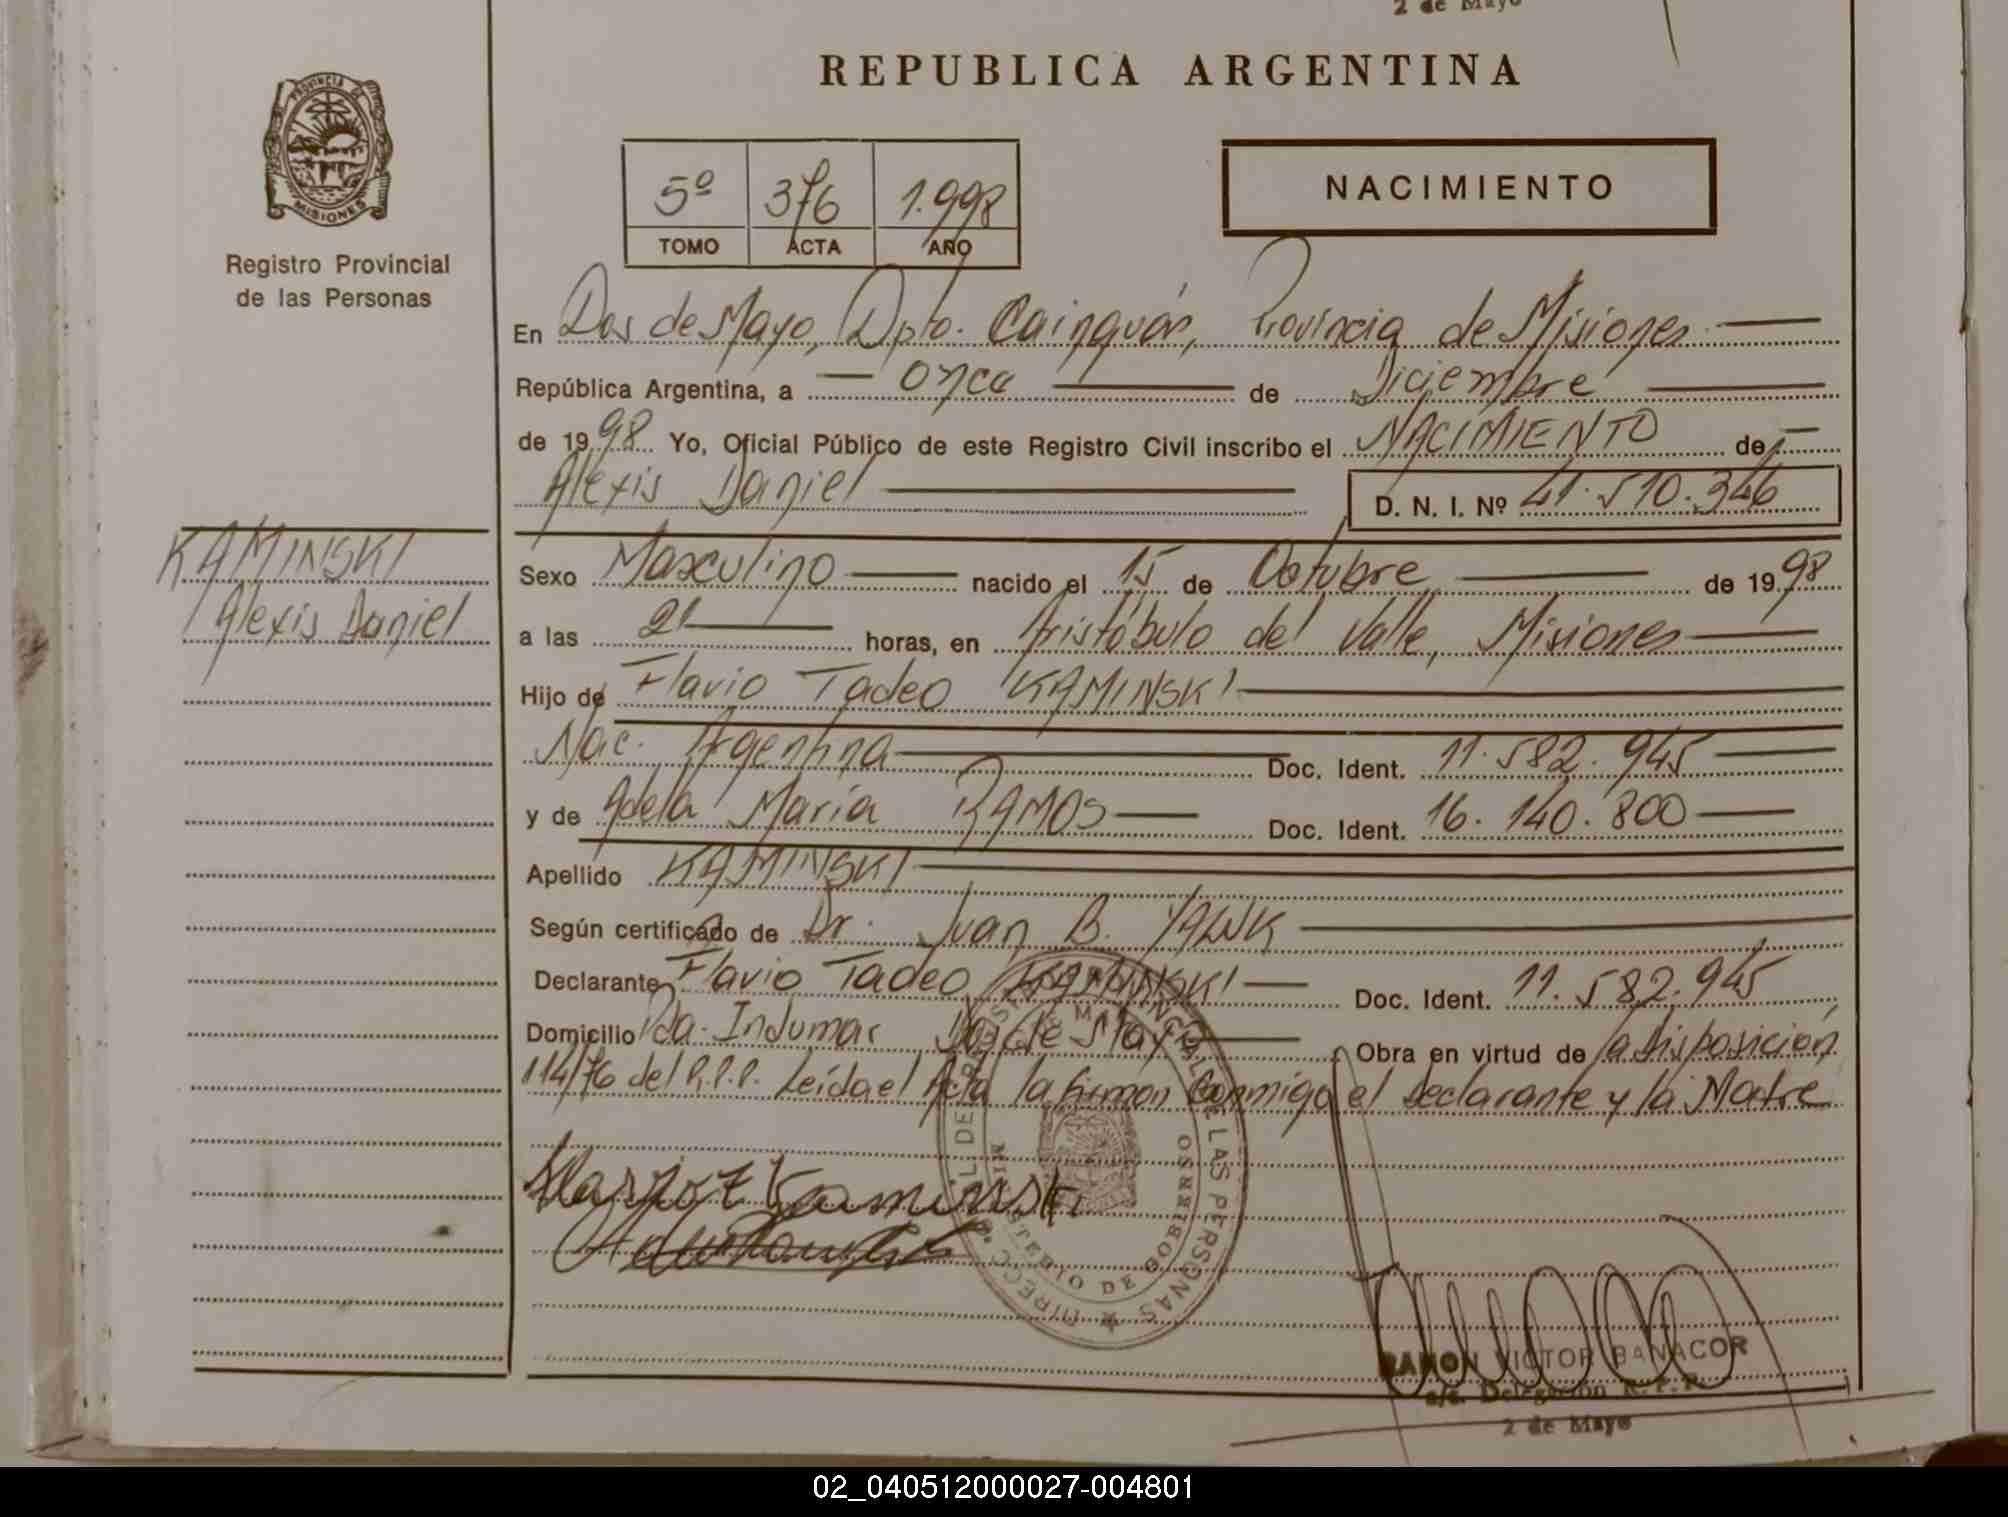 2 de Mayo
REPUBLICA ARGENTINA
PROVINCIA DE
MISIONES
Registro Provincial
de las Personas
5º 376 1.998
TOMO ACTA AÑO
NACIMIENTO
En Dos de Mayo, Dpto. Cainguás, Provincia de Misiones
República Argentina, a once de Diciembre
de 1998 Yo, Oficial Público de este Registro Civil inscribo el NACIMIENTO de
Alexis Daniel D. N. I. Nº 41.510.346
KAMINSKI
Alexis Daniel
Sexo Masculino nacido el 15 de Octubre de 1998
a las 21 horas, en Aristóbulo del Valle, Misiones
Hijo de Flavio Tadeo KAMINSKI
Nac. Argentina Doc. Ident. 11.582.945
y de Adela María RAMOS Doc. Ident. 16.140.800
Apellido KAMINSKI
Según certificado de Dr. Juan B. YALUK
Declarante Flavio Tadeo KAMINSKI Doc. Ident. 11.582.945
Domicilio Pda. Indumar Dos de Mayo Obra en virtud de la disposición
114/76 del R.P.P. Leída el Acta la firman Conmigo el declarante y la Madre
DIRECC. GRAL. DEL REGISTRO PROVINCIAL DE LAS PERSONAS
MINISTERIO DE GOBIERNO
RAMON VICTOR BANACOR
a/c. Delegación R.P.P.
2 de Mayo
02_040512000027-004801